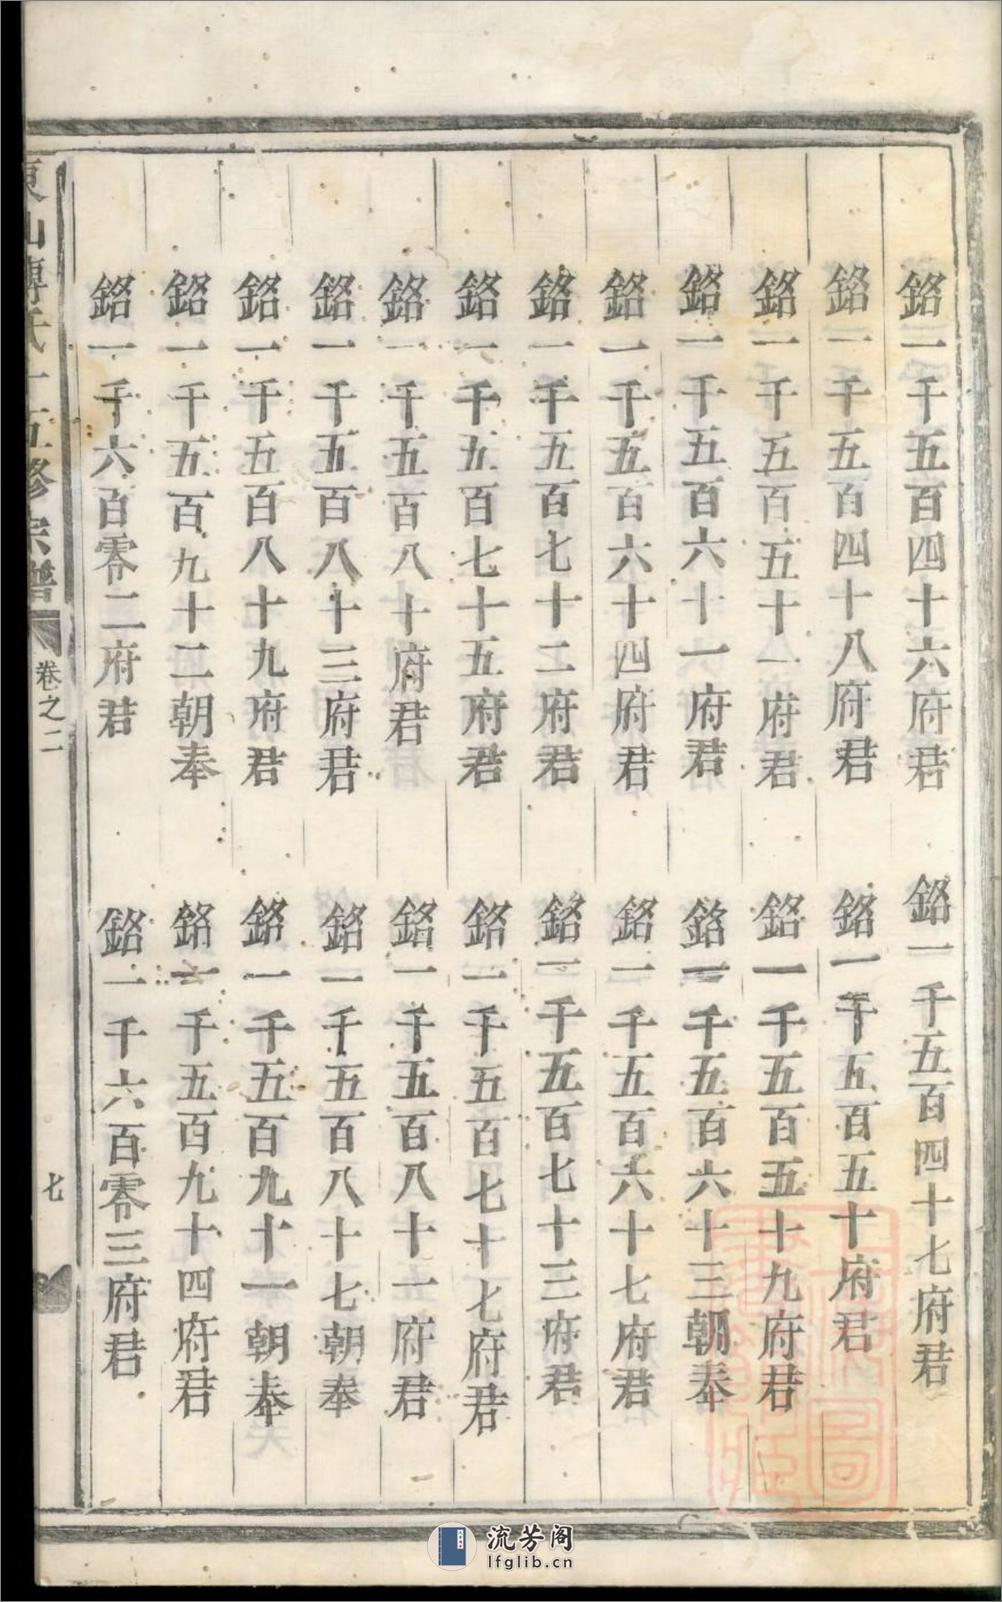 銘一千五百四十六府君
銘一千五百四十七府君
銘一千五百四十八府君
銘一千五百五十府君
銘一千五百五十一府君
銘一千五百五十九府君
銘一千五百六十一府君
銘一千五百六十三朝奉
銘一千五百六十四府君
銘一千五百六十七府君
銘一千五百七十二府君
銘一千五百七十三府君
銘一千五百七十五府君
銘一千五百七十七府君
銘一千五百八十府君
銘一千五百八十一府君
銘一千五百八十三府君
銘一千五百八十七朝奉
銘一千五百八十九府君
銘一千五百九十一朝奉
銘一千五百九十二朝奉
銘一千五百九十四府君
銘一千六百零二府君
銘一千六百零三府君
東山傅氏十五修宗譜
卷之二
七
流芳阁
lfglib.cn